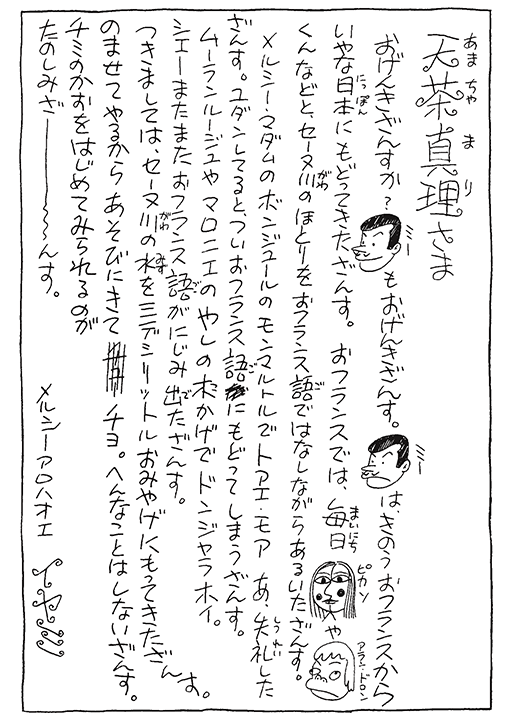 あまちゃまり
天茶真理さま
おげんきざんすか？ミーもおげんきざんす。ミーは、きのうおフランスから
いやな日本にもどってきたざんす。おフランスでは、毎日ピカソやアラン・ドロン
くんなどと、セーヌ川のほとりをおフランス語ではなしながらあるいたざんす。
メルシー・マダムのボンジュールのモンマルトルでトアエ・モア あ、失礼した
ざんす。ユダンしてると、ついおフランス語にもどってしまうざんす。
ムーランルージュやマロニエのやしの木かげでドンジャラホイ。
シェーまたまたおフランス語がにじみ出たざんす。
つきましては、セーヌ川の水を三デシリットルおみやげにもってきたざんす。
のませてやるからあそびにきてチョ。へんなことはしないざんす。
チミのかずをはじめてみられるのが
たのしみざ――～～んす。
メルシーアロハオエ イヤミ